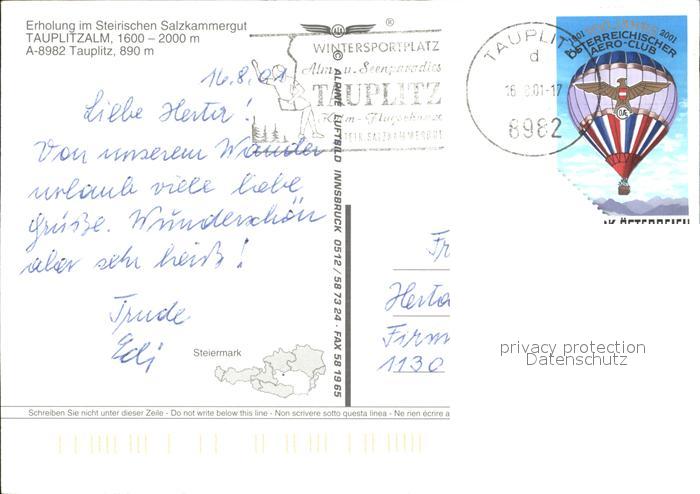 Erholung im Steirischen Salzkammergut
TAUPLITZALM, 1600 – 2000 m
A-8982 Tauplitz, 890 m
16.8.01
Liebe Herta!
Von unserem Wander
urlaub viele liebe
Grüße. Wunderschön
aber sehr heiß!
Trude
Edi
Steiermark
®
© ALPINE LUFTBILD INNSBRUCK 0512 / 58 73 24 · FAX 58 19 65
WINTERSPORTPLATZ
Alm u. Seenparadies
TAUPLITZ
STEIR. SALZKAMMERGUT
TAUPLITZ
d
16.8.01-17
8982
1901 100 JAHRE 2001
ÖSTERREICHISCHER
AERO-CLUB
ÖAeC
ÖSTERREICH
Fr
Herta
Firm
1130
privacy protection
Datenschutz
Schreiben Sie nicht unter dieser Zeile - Do not write below this line - Non scrivere sotto questa linea - Ne rien écrire a